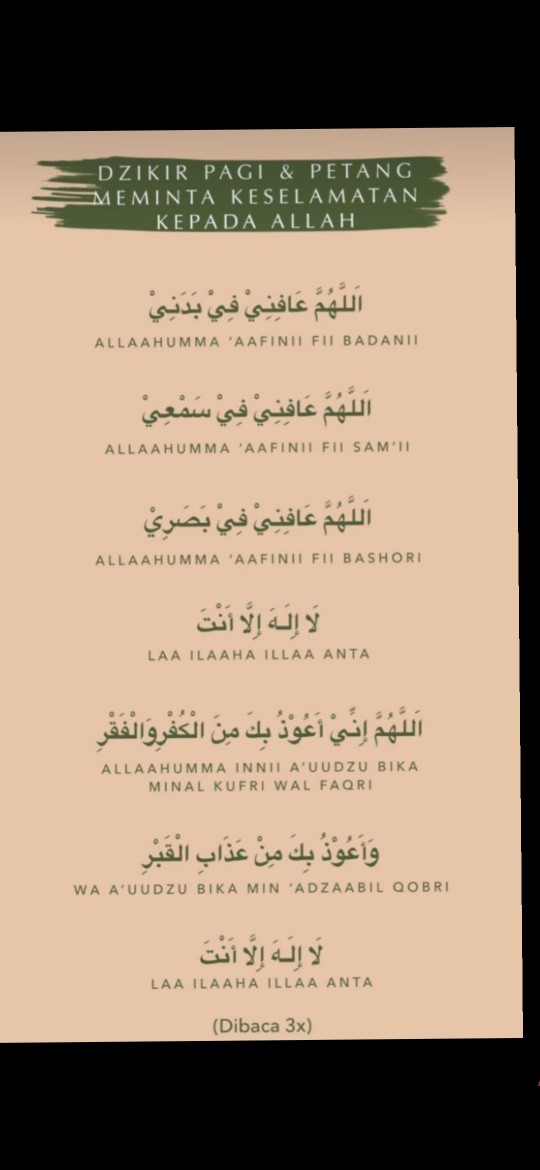 DZIKIR PAGI & PETANG
MEMINTA KESELAMATAN
KEPADA ALLAH
اَللَّهُمَّ عَافِنِيْ فِيْ بَدَنِيْ
ALLAAHUMMA ‘AAFINII FII BADANII
اَللَّهُمَّ عَافِنِيْ فِيْ سَمْعِيْ
ALLAAHUMMA ‘AAFINII FII SAM’II
اَللَّهُمَّ عَافِنِيْ فِيْ بَصَرِيْ
ALLAAHUMMA ‘AAFINII FII BASHORI
لَا إِلَـهَ إِلَّا أَنْتَ
LAA ILAAHA ILLAA ANTA
اَللَّهُمَّ إِنِّـيْ أَعُوْذُ بِكَ مِنَ الْكُفْرِوَالْفَقْرِ
ALLAAHUMMA INNII A’UUDZU BIKA
MINAL KUFRI WAL FAQRI
وَأَعُوْذُ بِكَ مِنْ عَذَابِ الْقَبْرِ
WA A’UUDZU BIKA MIN ‘ADZAABIL QOBRI
لَا إِلَـهَ إِلَّا أَنْتَ
LAA ILAAHA ILLAA ANTA
(Dibaca 3x)